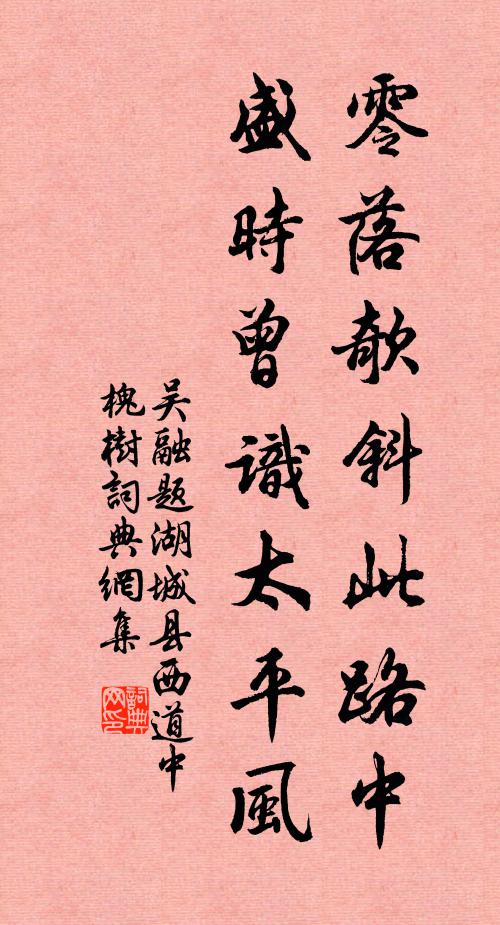 零落欹斜此路中
盛時曾識太平風
吴融题湖城县西道中
槐樹詞典網集
詞典
网印